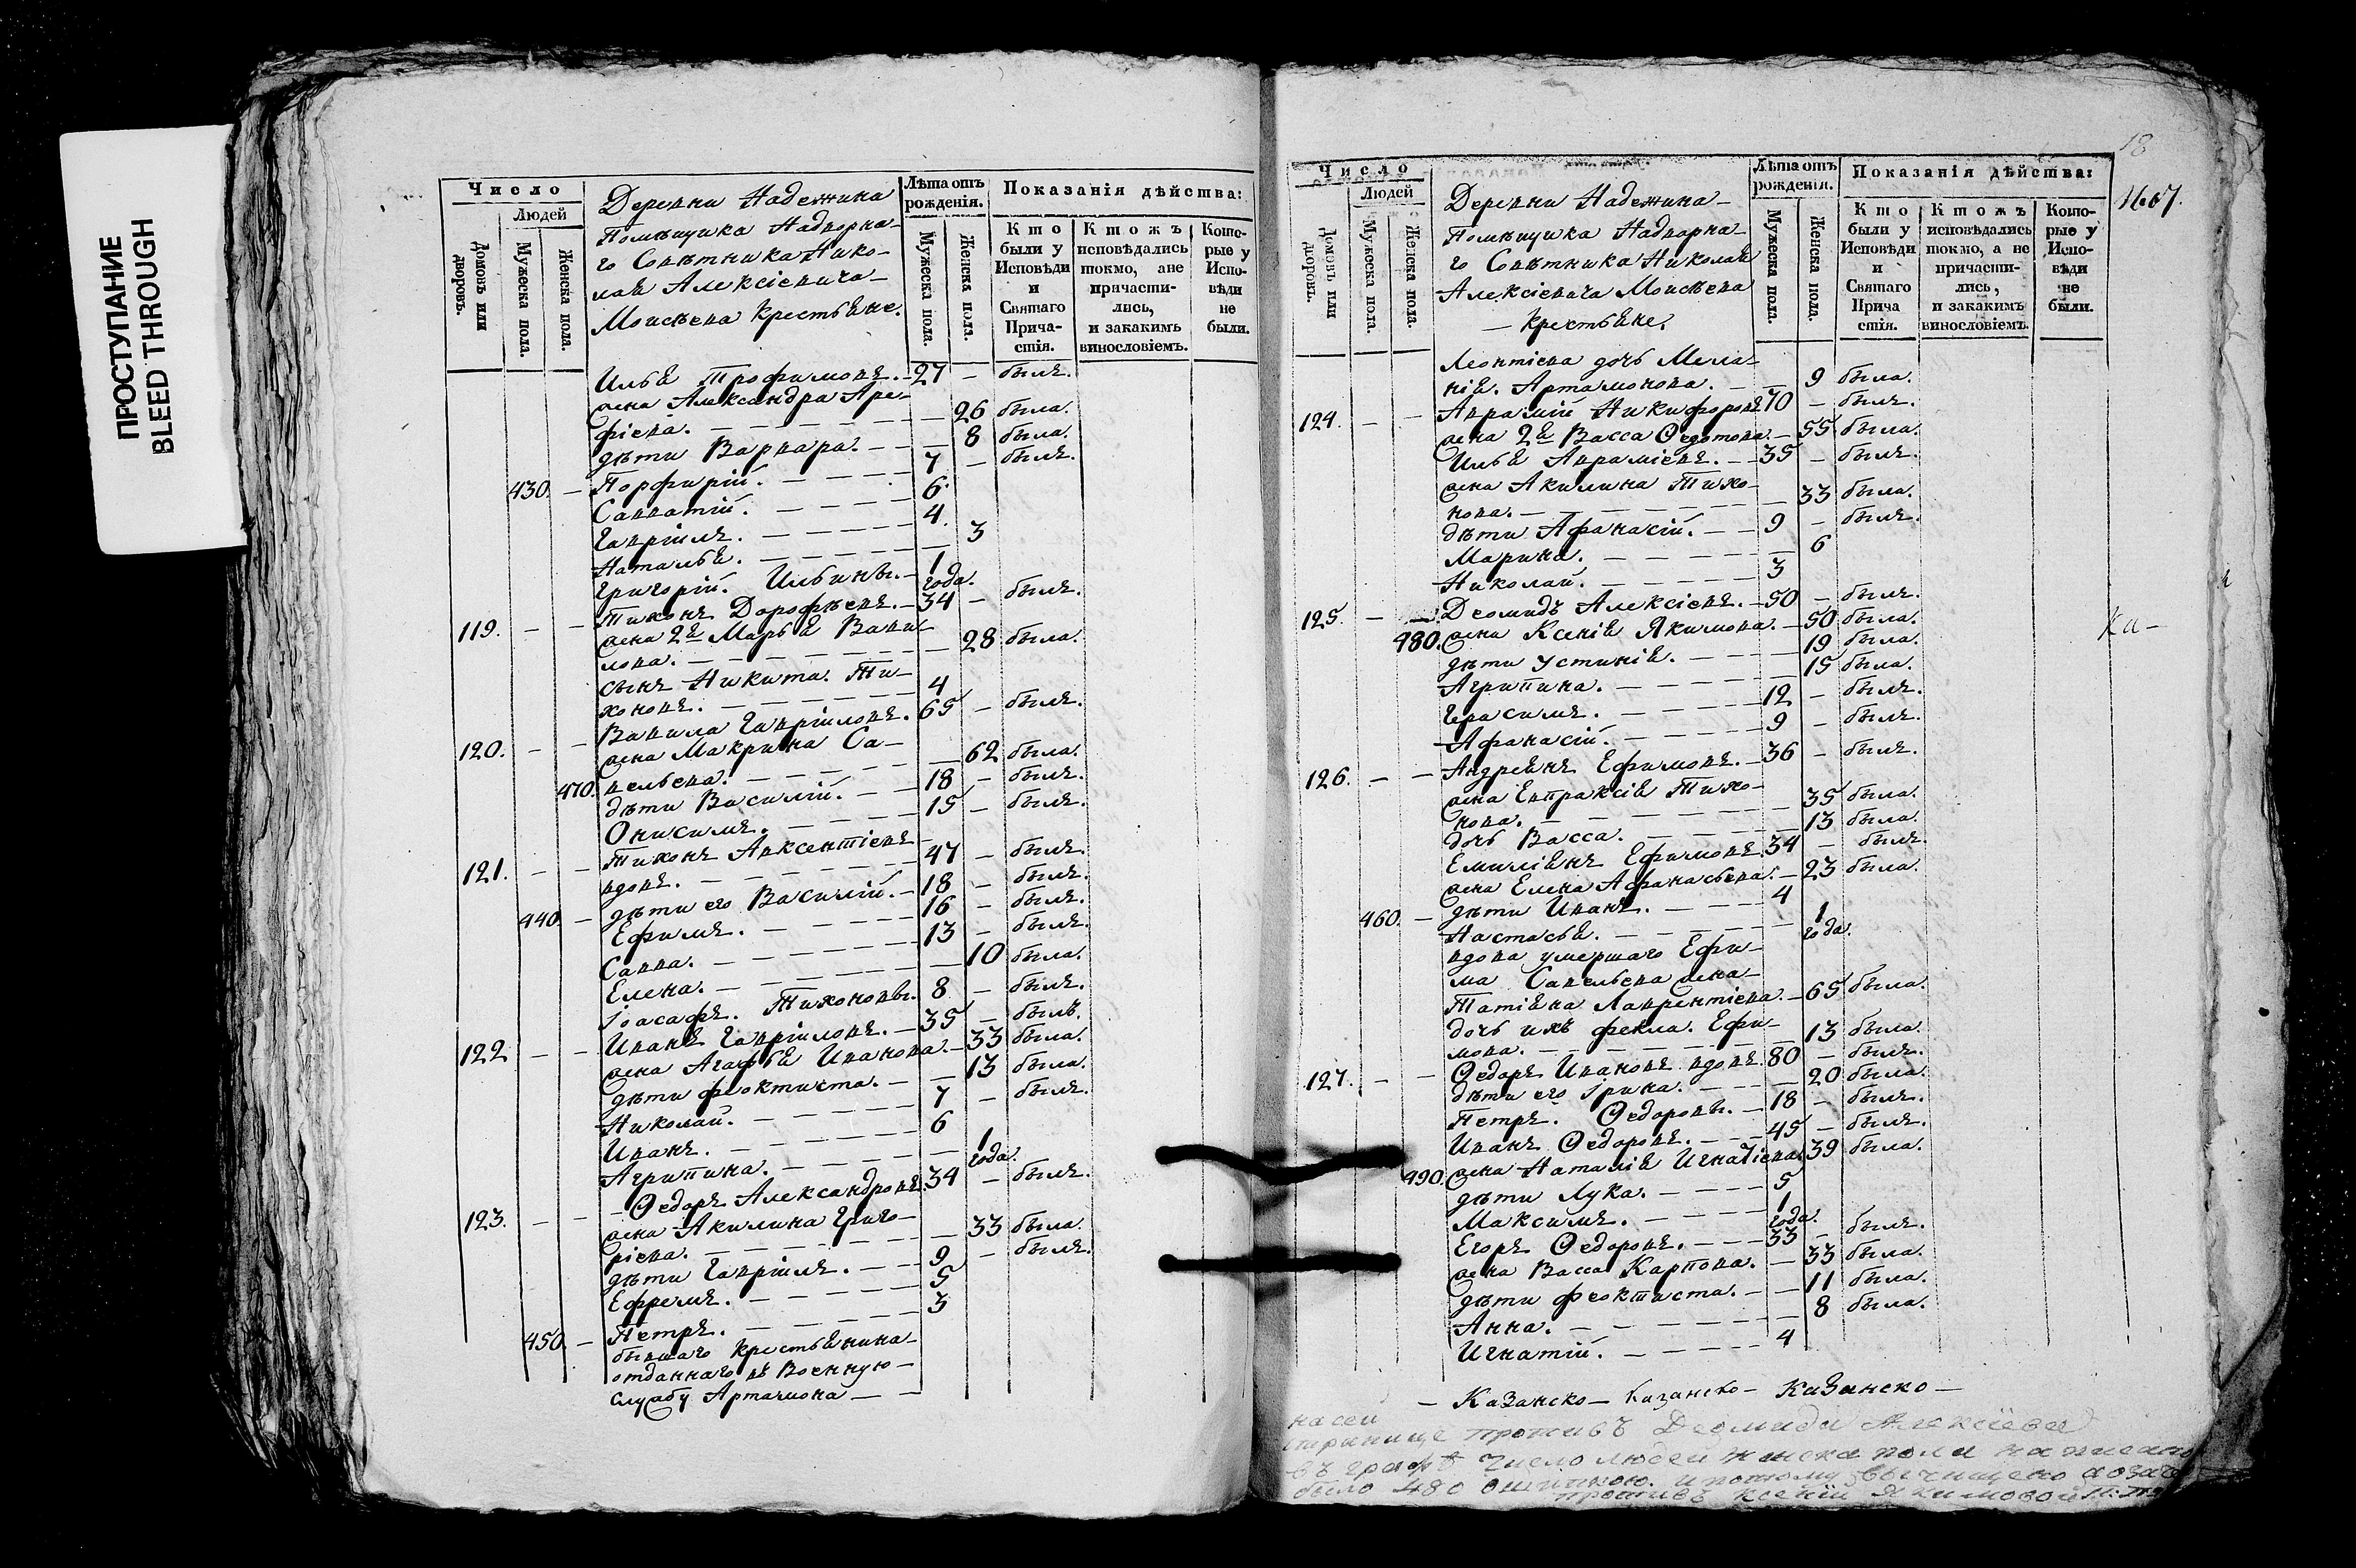 ПРОСТУПАНИЕ
BLEED THROUGH
Число
Людей
Домовъ или дворовъ.
Мужеска пола.
Женска пола.
Деревни Надежина
Помѣщика Надворна-
го Совѣтника Нико-
лая Алексіевича
Моисѣева крестьяне.
Лѣта отъ рожденія.
Мужеска пола.
Женска пола.
Показанія дѣйства:
Кто были у Исповѣди и Святаго Прича-стія.
Ктожъ исповѣдались токмо, ане причасти-лись, и закакимъ винословіемъ.
Кото-рые у Испо-вѣди не были.
Илья Трофимовъ. 27 – былъ.
жена Александра Аре-
фіева. – 26 была.
дѣти Варвара. – 8 была.
430. – Порфирій. 7 – былъ.
Савватій. 6.
Гавріилъ. 4.
Наталья. – 3
Григорій. Ильины. 1 года.
119. – – Тихонъ Дорофѣевъ. 34 – былъ.
жена 2я Марья Вави-
лова. – 28 была.
сынъ Никита. Ти-
хоновъ. 4
120. – – Вавила Гавріиловъ. 65 – былъ.
жена Макрина Са-
470. вельева. – 62 была.
дѣти Василій. 18 – былъ.
Онисимъ. 15 – былъ.
121. – – Тихонъ Авксентіевъ
вдовъ. 47 – былъ.
440. – дѣти его Василій. 18 – былъ.
Ефимъ. 16 – былъ.
Савва. 13 – былъ.
Елена. – 10 была.
Іоасафъ. Тихоновы. 8 – былъ.
122 – – Иванъ Гавріиловъ. 35 – былъ.
жена Агафья Иванова. 33 была.
дѣти Феоктиста. – 13 была.
Николай. 7 – былъ.
Иванъ. 6
Агрипина. – 1 года.
123. – – Ѳедоръ Александровъ. 34 – былъ.
жена Акилина Григо-
ріева. – 33 была.
дѣти Гавріилъ. 9 – былъ.
Ефремъ. 5
450. – Петръ. 3
бывшаго крестьянина
отданнаго въ Военную
службу Артамона
18
1607.
Число
Людей
Домовъ или дворовъ.
Мужеска пола.
Женска пола.
Деревни Надежина
Помѣщика Надворна-
го Совѣтника Николая
Алексіевича Моисѣева
– крестьяне.
Лѣта отъ рожденія.
Мужеска пола.
Женска пола.
Показанія дѣйства:
Кто были у Исповѣди и Святаго Прича стія.
Ктожъ исповѣдались токмо, а не причасти-лись, и закакимъ винословіемъ.
Кото-рые у Испо-вѣди не были.
Леонтіева дочь Мела-
нія. Артамонова. – 9 была.
124. – – Аврамій Никифоровъ 70 – былъ.
жена 2я Васса Ѳедотова. – 55 была.
Илья Авраміевъ. 35 – былъ.
жена Акилина Тихо-
нова. – 33 была.
дѣти Афанасій. 9 – былъ.
Марина. – 6
Николай. 3
125. – Деомидъ Алексіевъ. 50 – былъ.
480. жена Ксенія Якимова. – 50 была.
дѣти Устинія. – 19 была.
Агрипина. – 15 была.
Герасимъ. 12 – былъ.
Афанасій. 9 – былъ.
126. – – Андреянъ Ефимовъ. 36 – былъ.
жена Евпраксія Тихо-
нова. – 35 была.
дочь Васса. – 13 была.
Емиліянъ Ефимовъ. 34 – былъ.
жена Елена Афанасьева. – 23 была.
460. – дѣти Иванъ. 4
Настасья. – 1 года.
вдова умершаго Ефи-
ма Савельева жена
Татіяна Лаврентіева. – 65 была.
дочь ихъ Фекла. Ефи-
мова. – 13 была.
127. – – Ѳедоръ Ивановъ вдовъ. 80 – былъ.
дѣти его Ірина. – 20 была.
Петръ. Ѳедоровы. 18 – былъ.
Иванъ Ѳедоровъ. 45 – былъ.
490. жена Наталія Игнатіева. 39 была.
дѣти Лука. 5
Максимъ. 1 года.
Егоръ Ѳедоровъ. 33 – былъ.
жена Васса Карпова. – 33 была.
дѣти Феоктиста. – 11 была.
Анна. – 8 была.
Игнатій. 4
Ка–
– Казанско – Казанско – Казанско –
на сей
странице противъ Деомида Алексіева
въ графѣ число людей женска пола написано
было 480 ошипкою. и потому вычищено а
противъ Ксеніи Якимовой